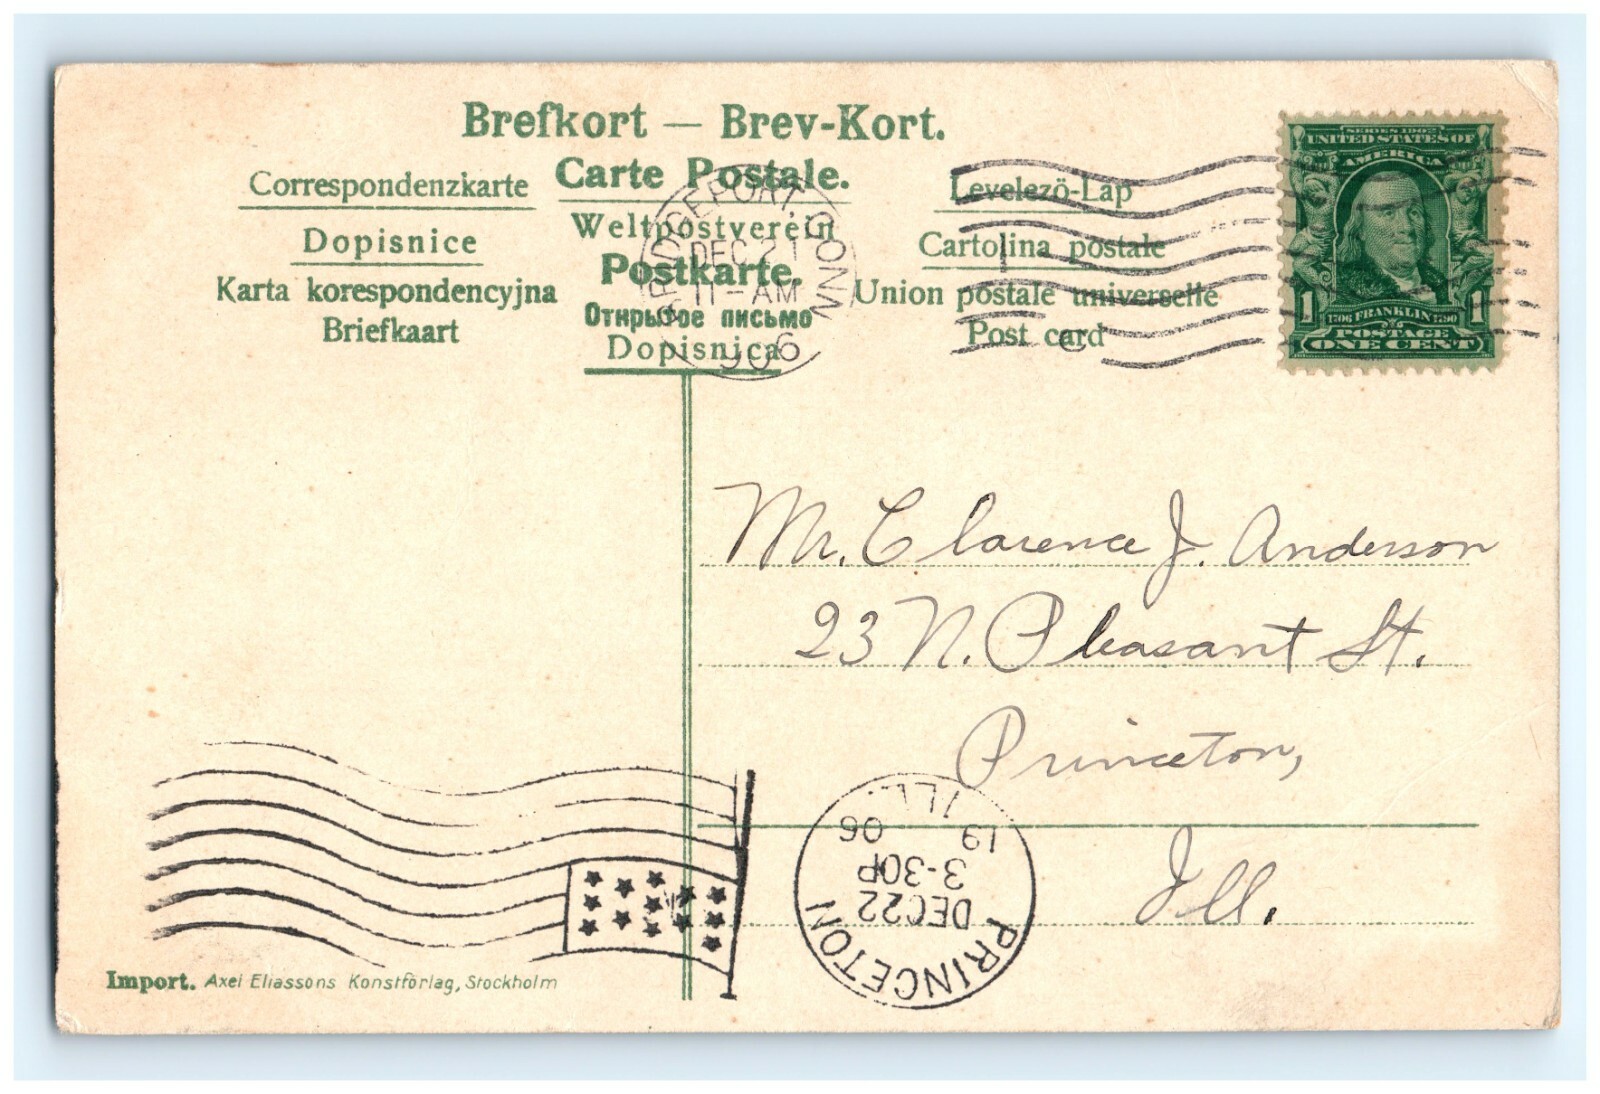 Brefkort — Brev-Kort.
Carte Postale.
Correspondenzkarte
Dopisnice
Karta korespondencyjna
Briefkaart
Weltpostverein
Postkarte.
Открытое письмо
Dopisnica
Levelezö-Lap
Cartolina postale
Union postale universelle
Post card
BRIDGEPORT CONN
DEC 21
11-AM
1906
SERIES 1902
UNITED STATES OF
AMERICA
1 1706 FRANKLIN 1790 1
POSTAGE
ONE CENT
Mr. Clarence J. Anderson
23 N. Pleasant St.
Princeton,
Ill.
PRINCETON
DEC 22
3-30P
19 06
ILL.
Import. Axel Eliassons Konstförlag, Stockholm